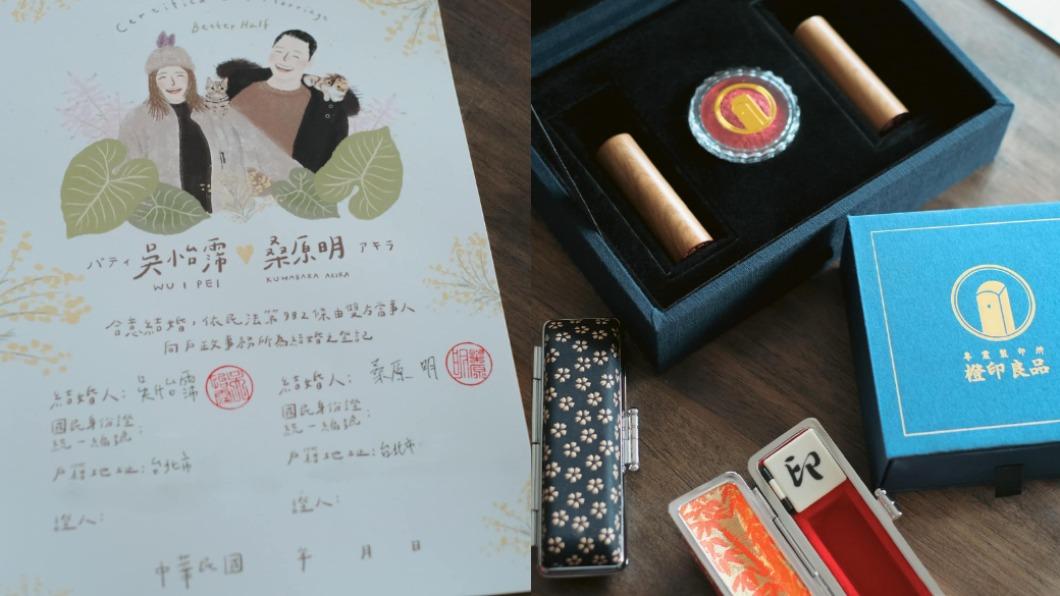 Better Half
パティ 吳怡霈 桑原明 アキラ
WU I PEI KUWABARA AKIRA
合意結婚，依民法第982條由雙方當事人
向戶政事務所為結婚之登記
結婚人：吳怡霈 結婚人：桑原 明
國民身份證 國民身份證
統一編號： 統一編號：
戶籍地址：台北市 戶籍地址：台北市
證人： 證人：
中華民國 年 月 日
專業製印所
橙印良品
印